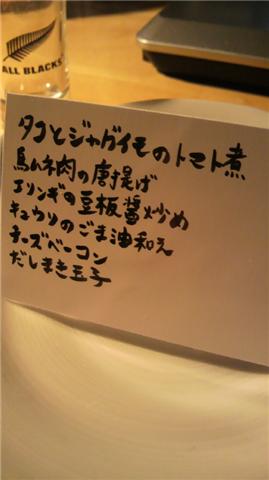 ALL BLACKS
タコとジャガイモのトマト煮
鳥ムネ肉の唐揚げ
エリンギの豆板醤炒め
キュウリのごま油和え
チーズベーコン
だしまき玉子